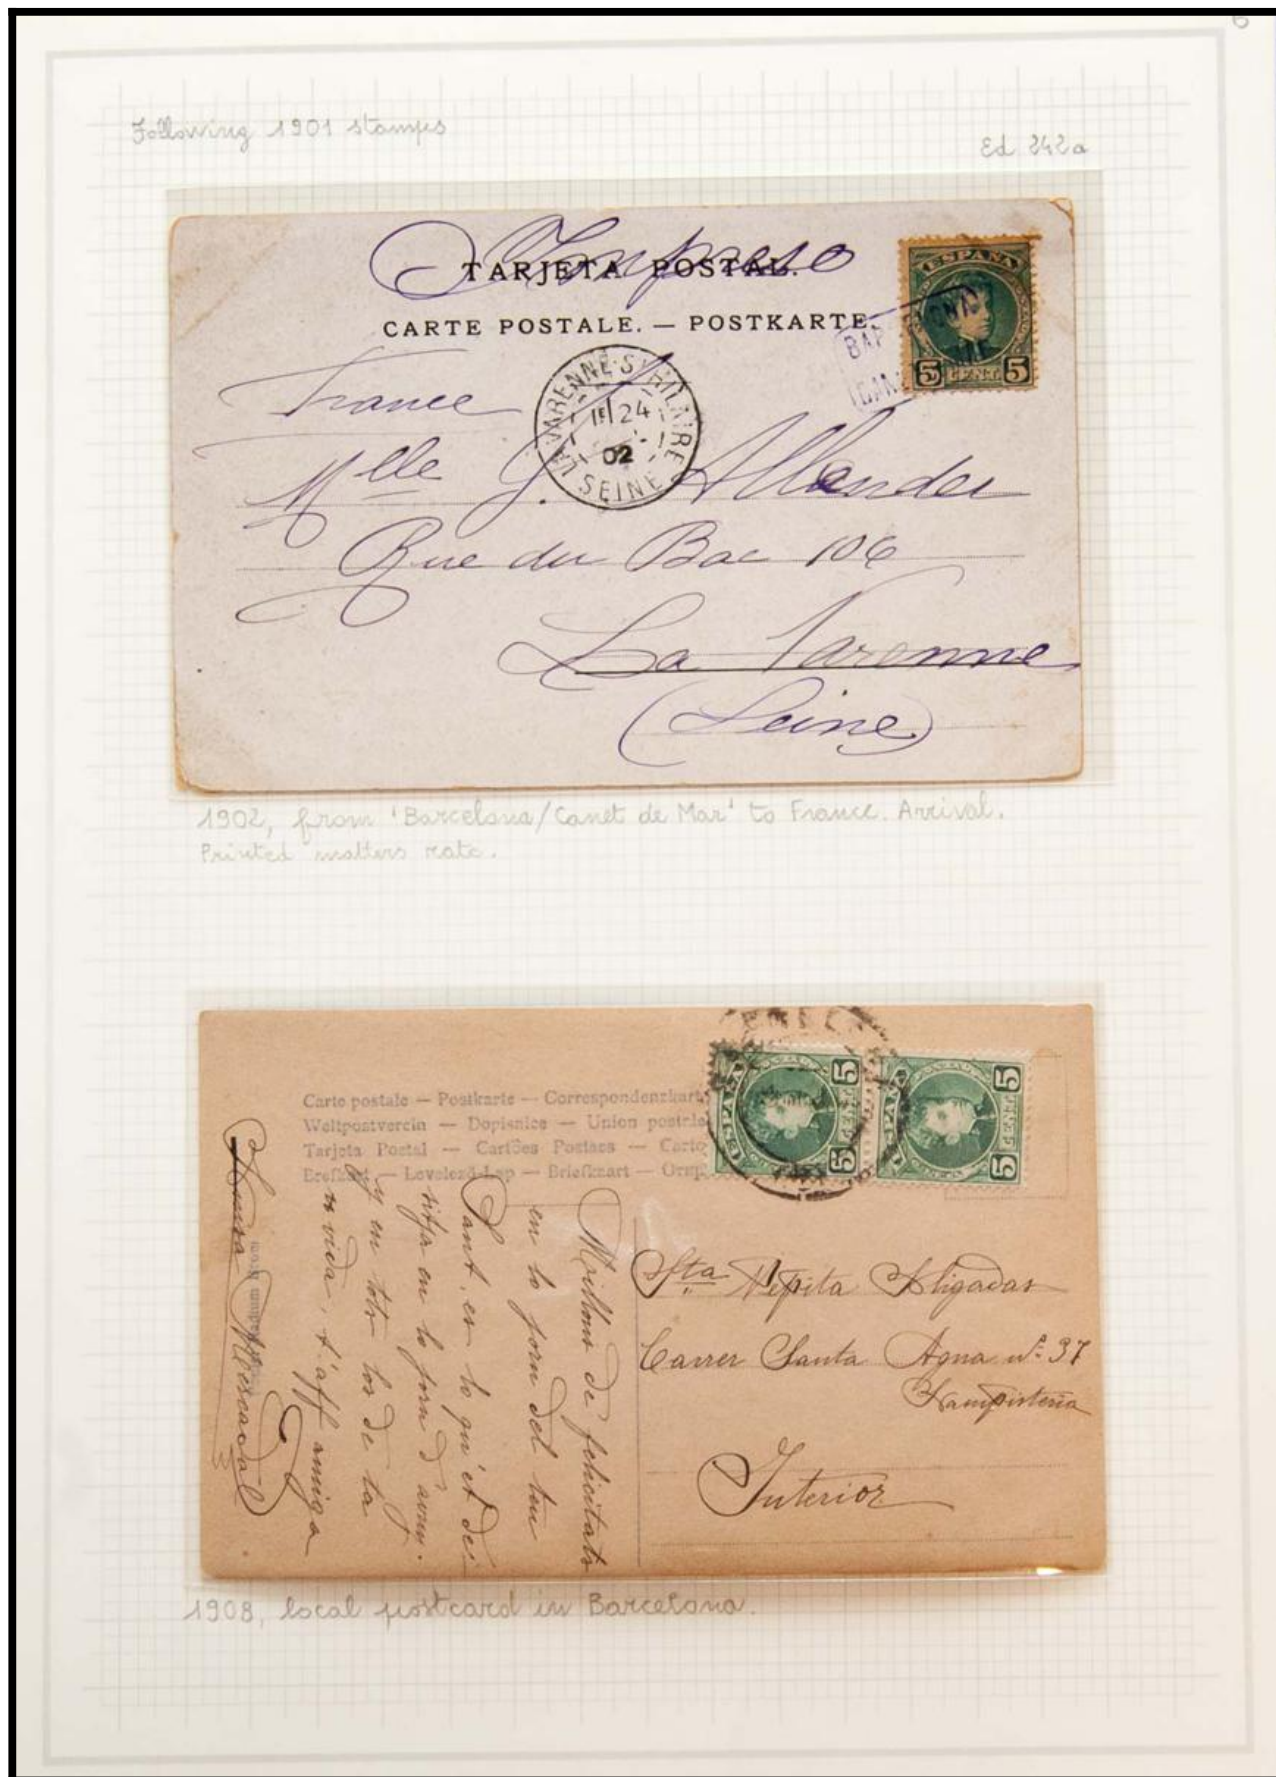 6
Following 1901 stamps
Ed 242a
Impreso
TARJETA POSTAL.
CARTE POSTALE. — POSTKARTE.
ESPAÑA
5 CENT. 5
BARCELONA
CANET
LA VARENNE-ST HILAIRE
1E 24
02
SEINE
France
Mlle J. Allander
Rue du Bac 106
La Varenne
(Seine)
1902, from 'Barcelona/Canet de Mar' to France. Arrival.
Printed matters rate.
Carte postale — Postkarte — Correspondenzkarte
Weltpostverein — Dopisnice — Union postale
Tarjeta Postal — Cartões Postaes — Carto
Brefkort — Levelező-Lap — Briefkaart —
ESPAÑA
5 CENT. 5
ESPAÑA
5 CENT. 5
Millons de felicitats
en lo jorn del teu
Sant, es lo qu'et de-
sitja en lo jorn d'avuy.
y en tots los de ta
vida, t'aff amiga
Luisa Mercadal
Sta Pepita Aligadas
Carrer Santa Agna nº 37
Lampisteria
Interior
1908, local postcard in Barcelona.